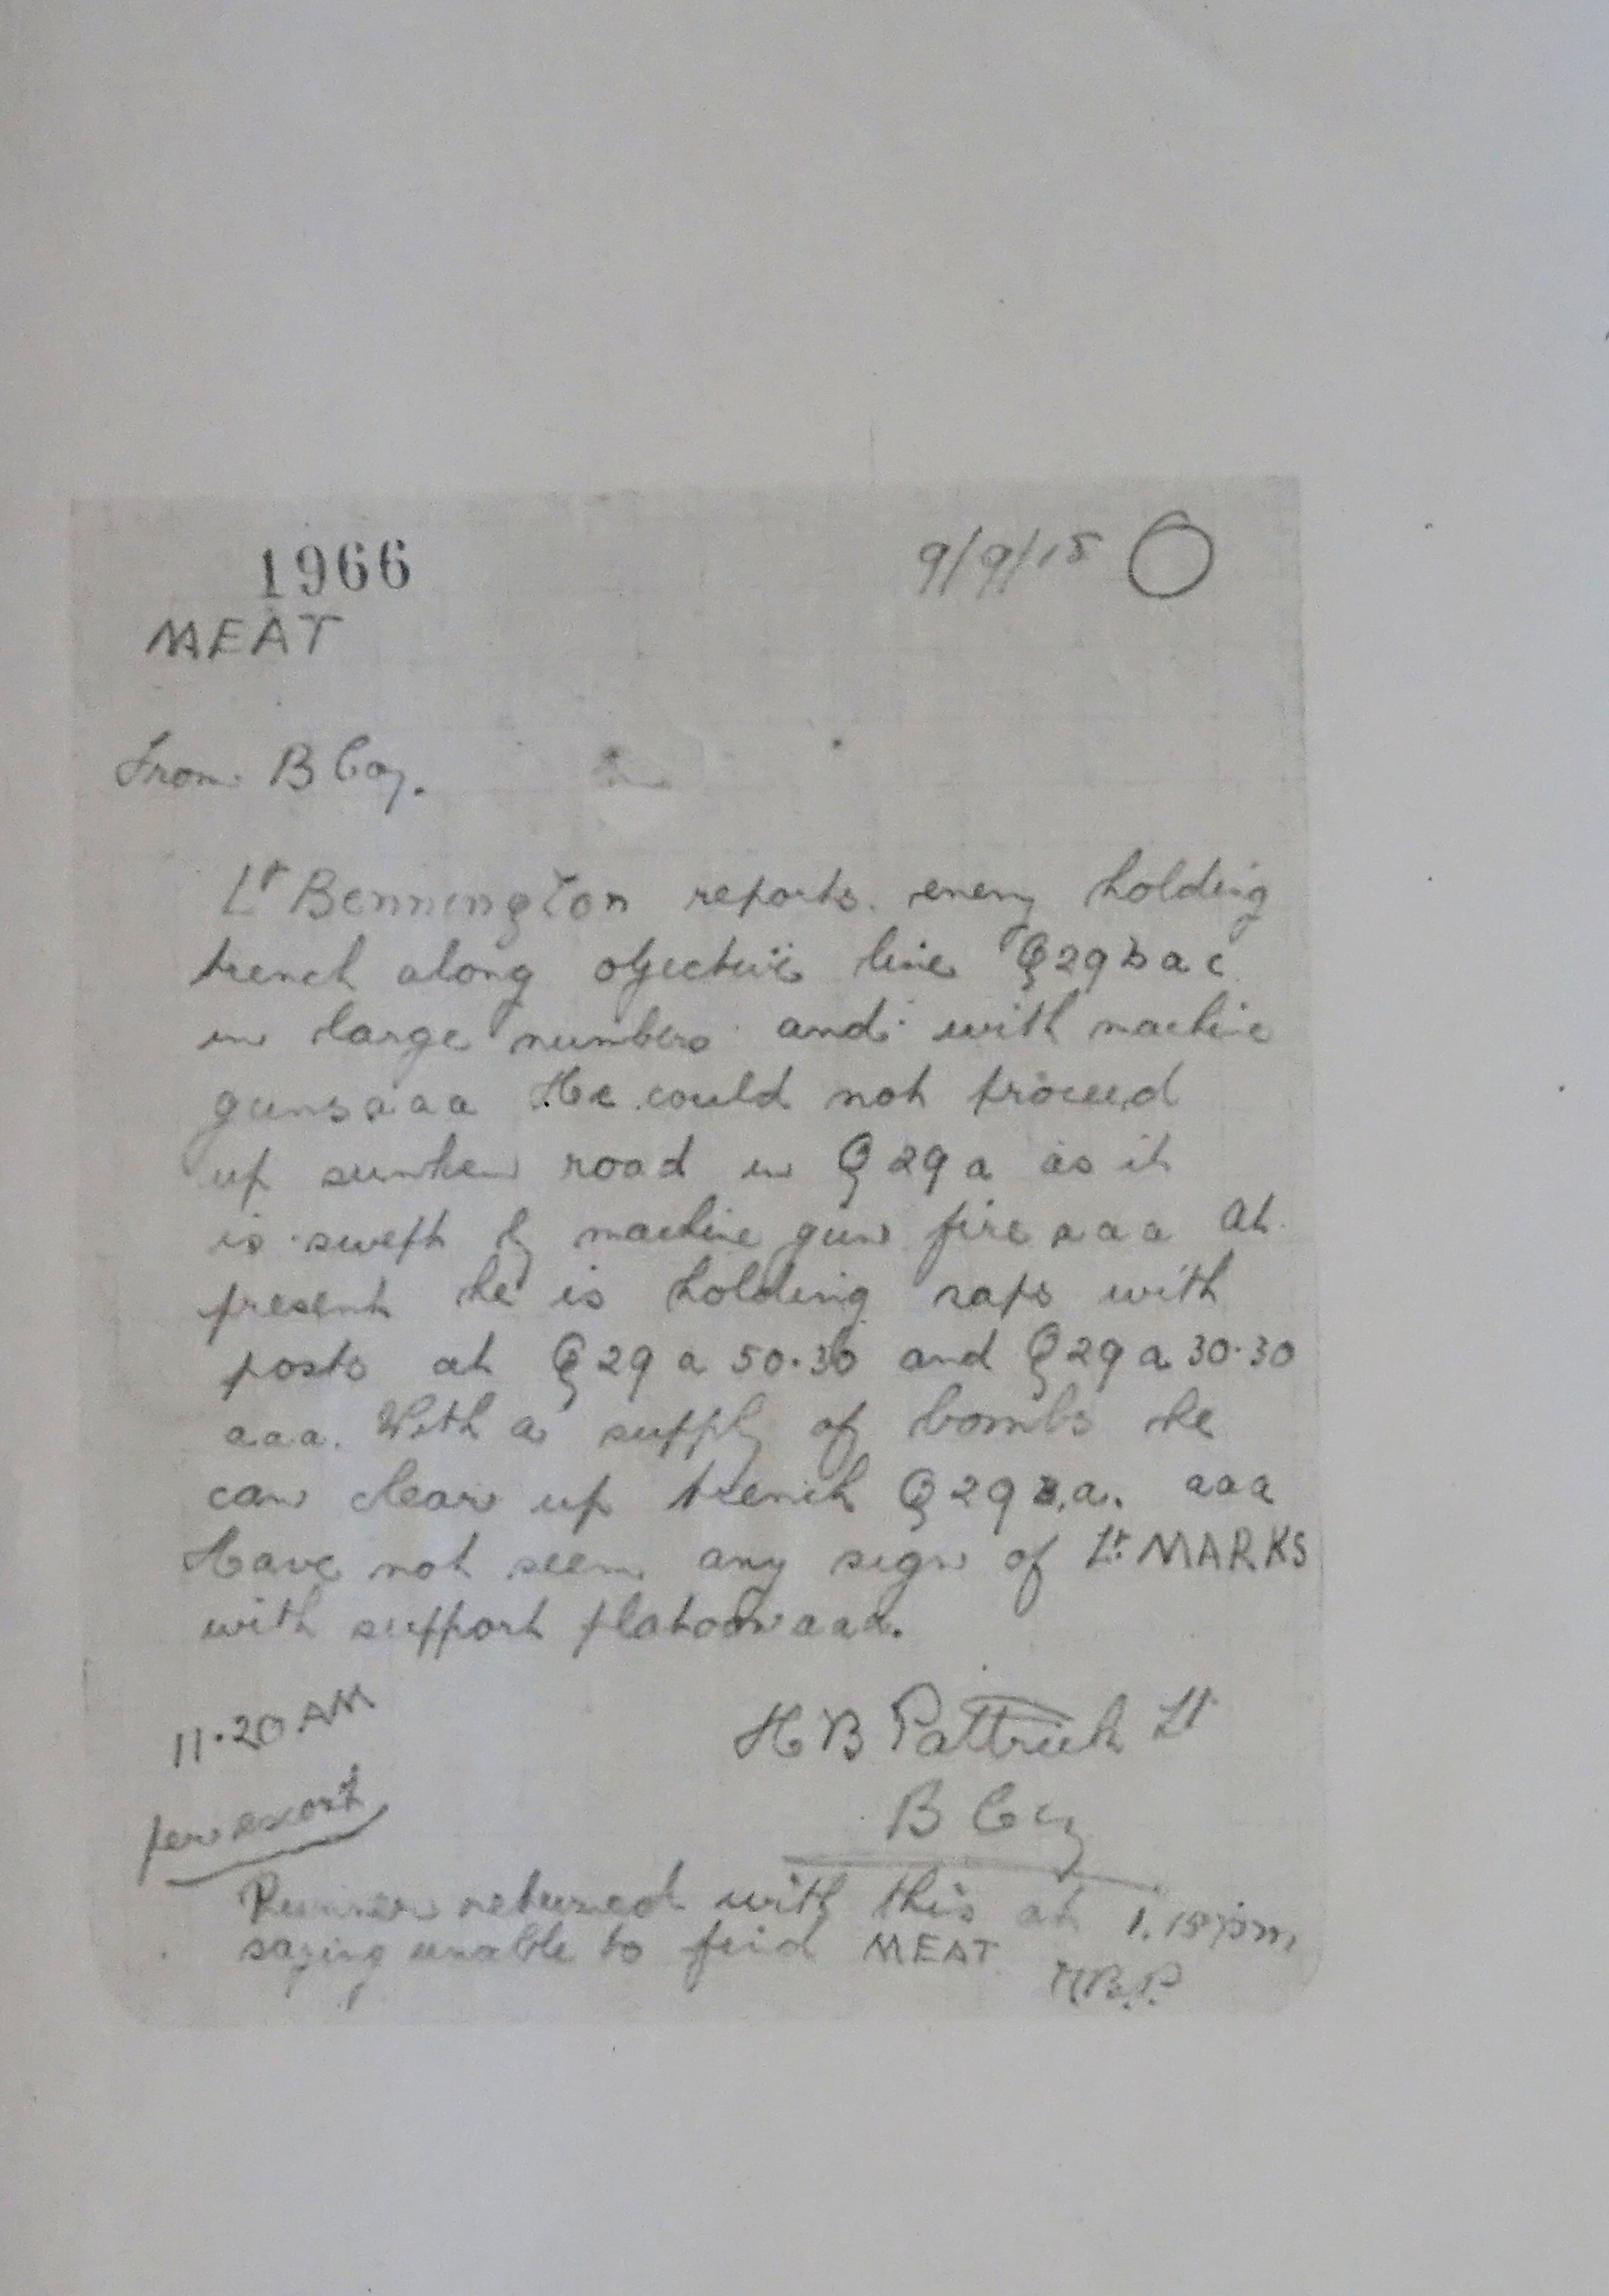 1966
9/9/18
MEAT
From B Coy.
Lt Bennington reports enemy holding
trench along objective line Q29 b a c
in large numbers and with machine
guns aaa He could not proceed
up sunken road in Q29a as it
is swept by machine gun fire aaa At
present he is holding saps with
posts at Q29a 50.30 and Q29a 30.30
aaa. With a supply of bombs he
can clear up trench Q29 a. aaa
Have not seen any sign of Lt. MARKS
with support platoon aaa.
11.20 AM
H B Pattrick Lt
B Coy
per escort
Runner returned with this at pm
saying unable to find MEAT
H.B.P.